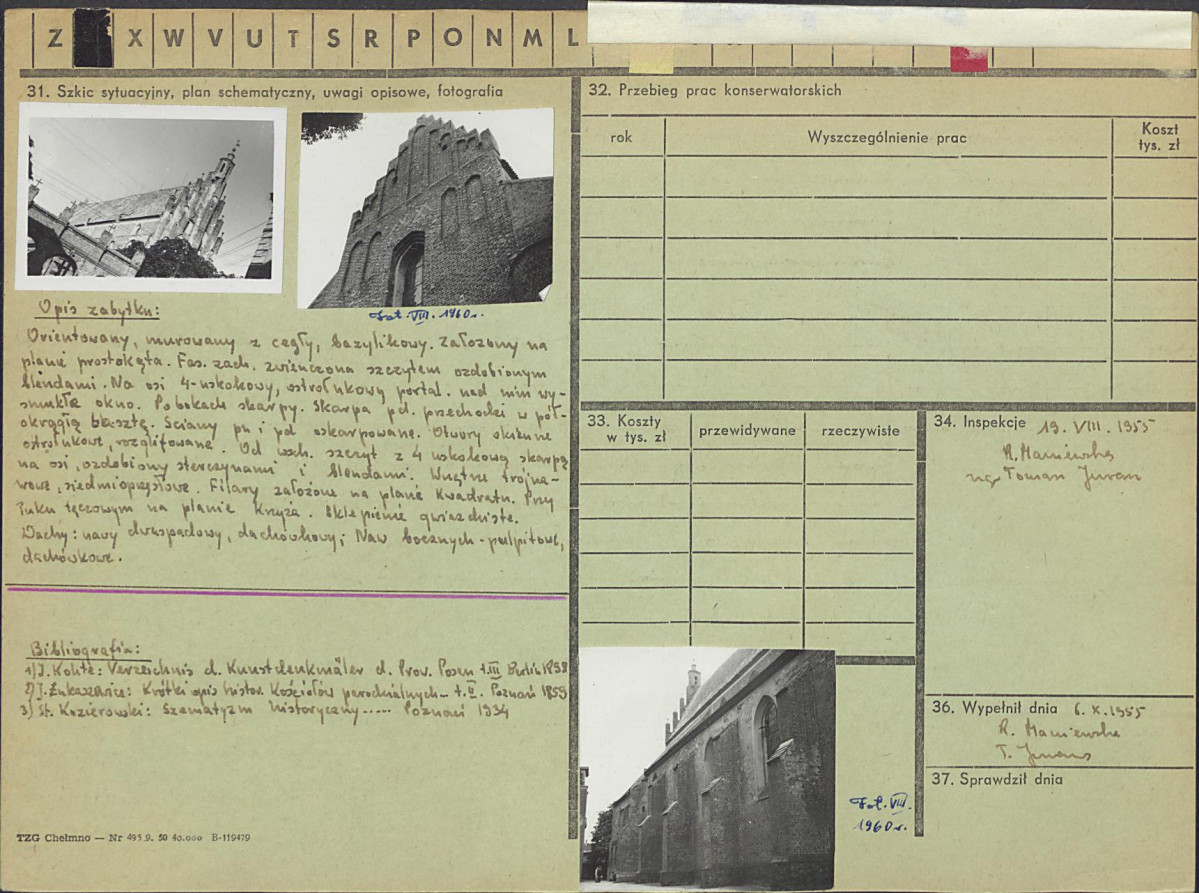 Z X W V U T S R P O N M L
31. Szkic sytuacyjny, plan schematyczny, uwagi opisowe, fotografia
Fot. VIII. 1960 r.
Opis zabytku:
Orientowany, murowany z cegły, bazylikowy. Założony na
planie prostokąta. Fas. zach. zwieńczona szczytem ozdobionym
blendami. Na osi 4-uskokowy, ostrołukowy portal. nad nim wy-
smukłe okno. Po bokach skarpy. Skarpa pd. przechodzi w pół-
okrągłą basztę. Ściany pn i pd oskarpowane. Otwory okienne
ostrołukowe, rozglifowane. Od wsch. szczyt z 4 uskokową skarpą
na osi, ozdobiony sterczynami i blendami. Wnętrze trójna-
wowe, siedmioprzęsłowe. Filary założone na planie kwadratu. Przy
łuku tęczowym na planie krzyża. Sklepienie gwiaździste.
Dachy: nawy dwuspadowy, dachówkowy; Naw bocznych - pulpitowe,
dachówkowe.
Bibliografia:
1) J. Kohte: Verzeichnis d. Kunstdenkmäler d. Prov. Posen t. III Berlin 1898
2) J. Łukaszewicz: Krótki opis histor. Kościołów parochialnych... t. II. Poznań 1859
3) St. Kozierowski: Szematyzm historyczny ..... Poznań 1934
TZG Chełmno — Nr 495 9. 50 40.000 B-119479
32. Przebieg prac konserwatorskich
rok
Wyszczególnienie prac
Koszt
tys. zł
33. Koszty
w tys. zł
przewidywane
rzeczywiste
Fot. VIII.
1960 r.
34. Inspekcje 19. VIII. 1955
R. Maniewska
mgr
36. Wypełnił dnia 6. X. 1955
R. Maniewska
T.
37. Sprawdził dnia